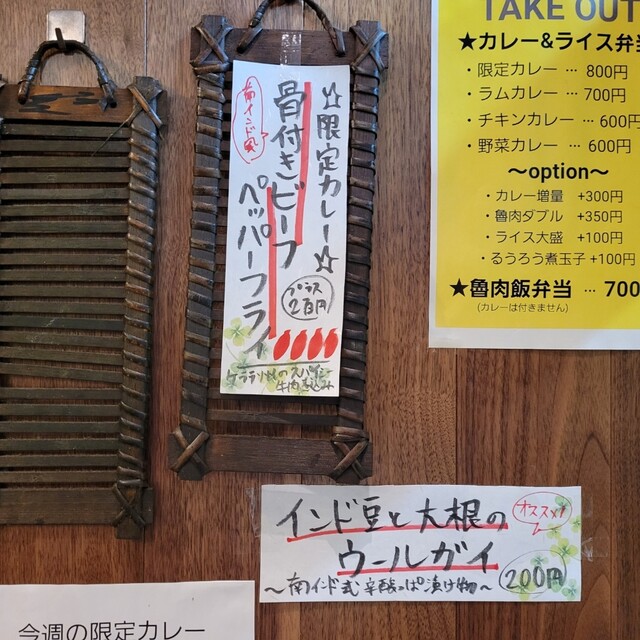 ☆限定カレー☆
骨付きビーフ
ペッパーフライ
南インド風
プラス
2百円
ケララ州のスパイシー
牛肉煮込み
インド豆と大根の
ウールガイ
オススメ!
〜南インド式 辛酸っぱ漬け物〜
200円
今週の限定カレー
TAKE OUT
★カレー&ライス弁当
・限定カレー … 800円
・ラムカレー … 700円
・チキンカレー … 600円
・野菜カレー … 600円
〜option〜
・カレー増量 +300円
・魯肉ダブル +350円
・ライス大盛 +100円
・るうろう煮玉子 +100円
★魯肉飯弁当 … 700
(カレーは付きません)